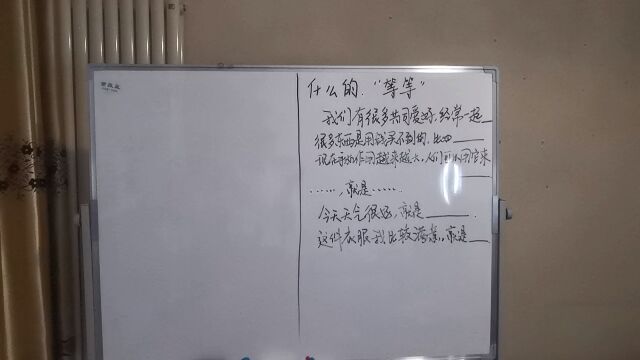 什么的."等等"
我们有很多共同爱好,经常一起___
很多东西是用钱买不到的,比如___
现在手机作用越来越大,人们可以用它来
___
……,就是……
今天天气很好,就是______.
这件衣服我比较满意,就是___